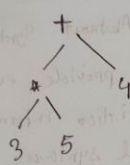 +
* 4
3 5